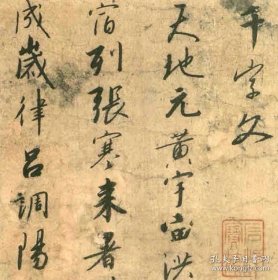 千字文
天地元黃宇宙洪
宿列張寒来暑
成歲律呂調陽